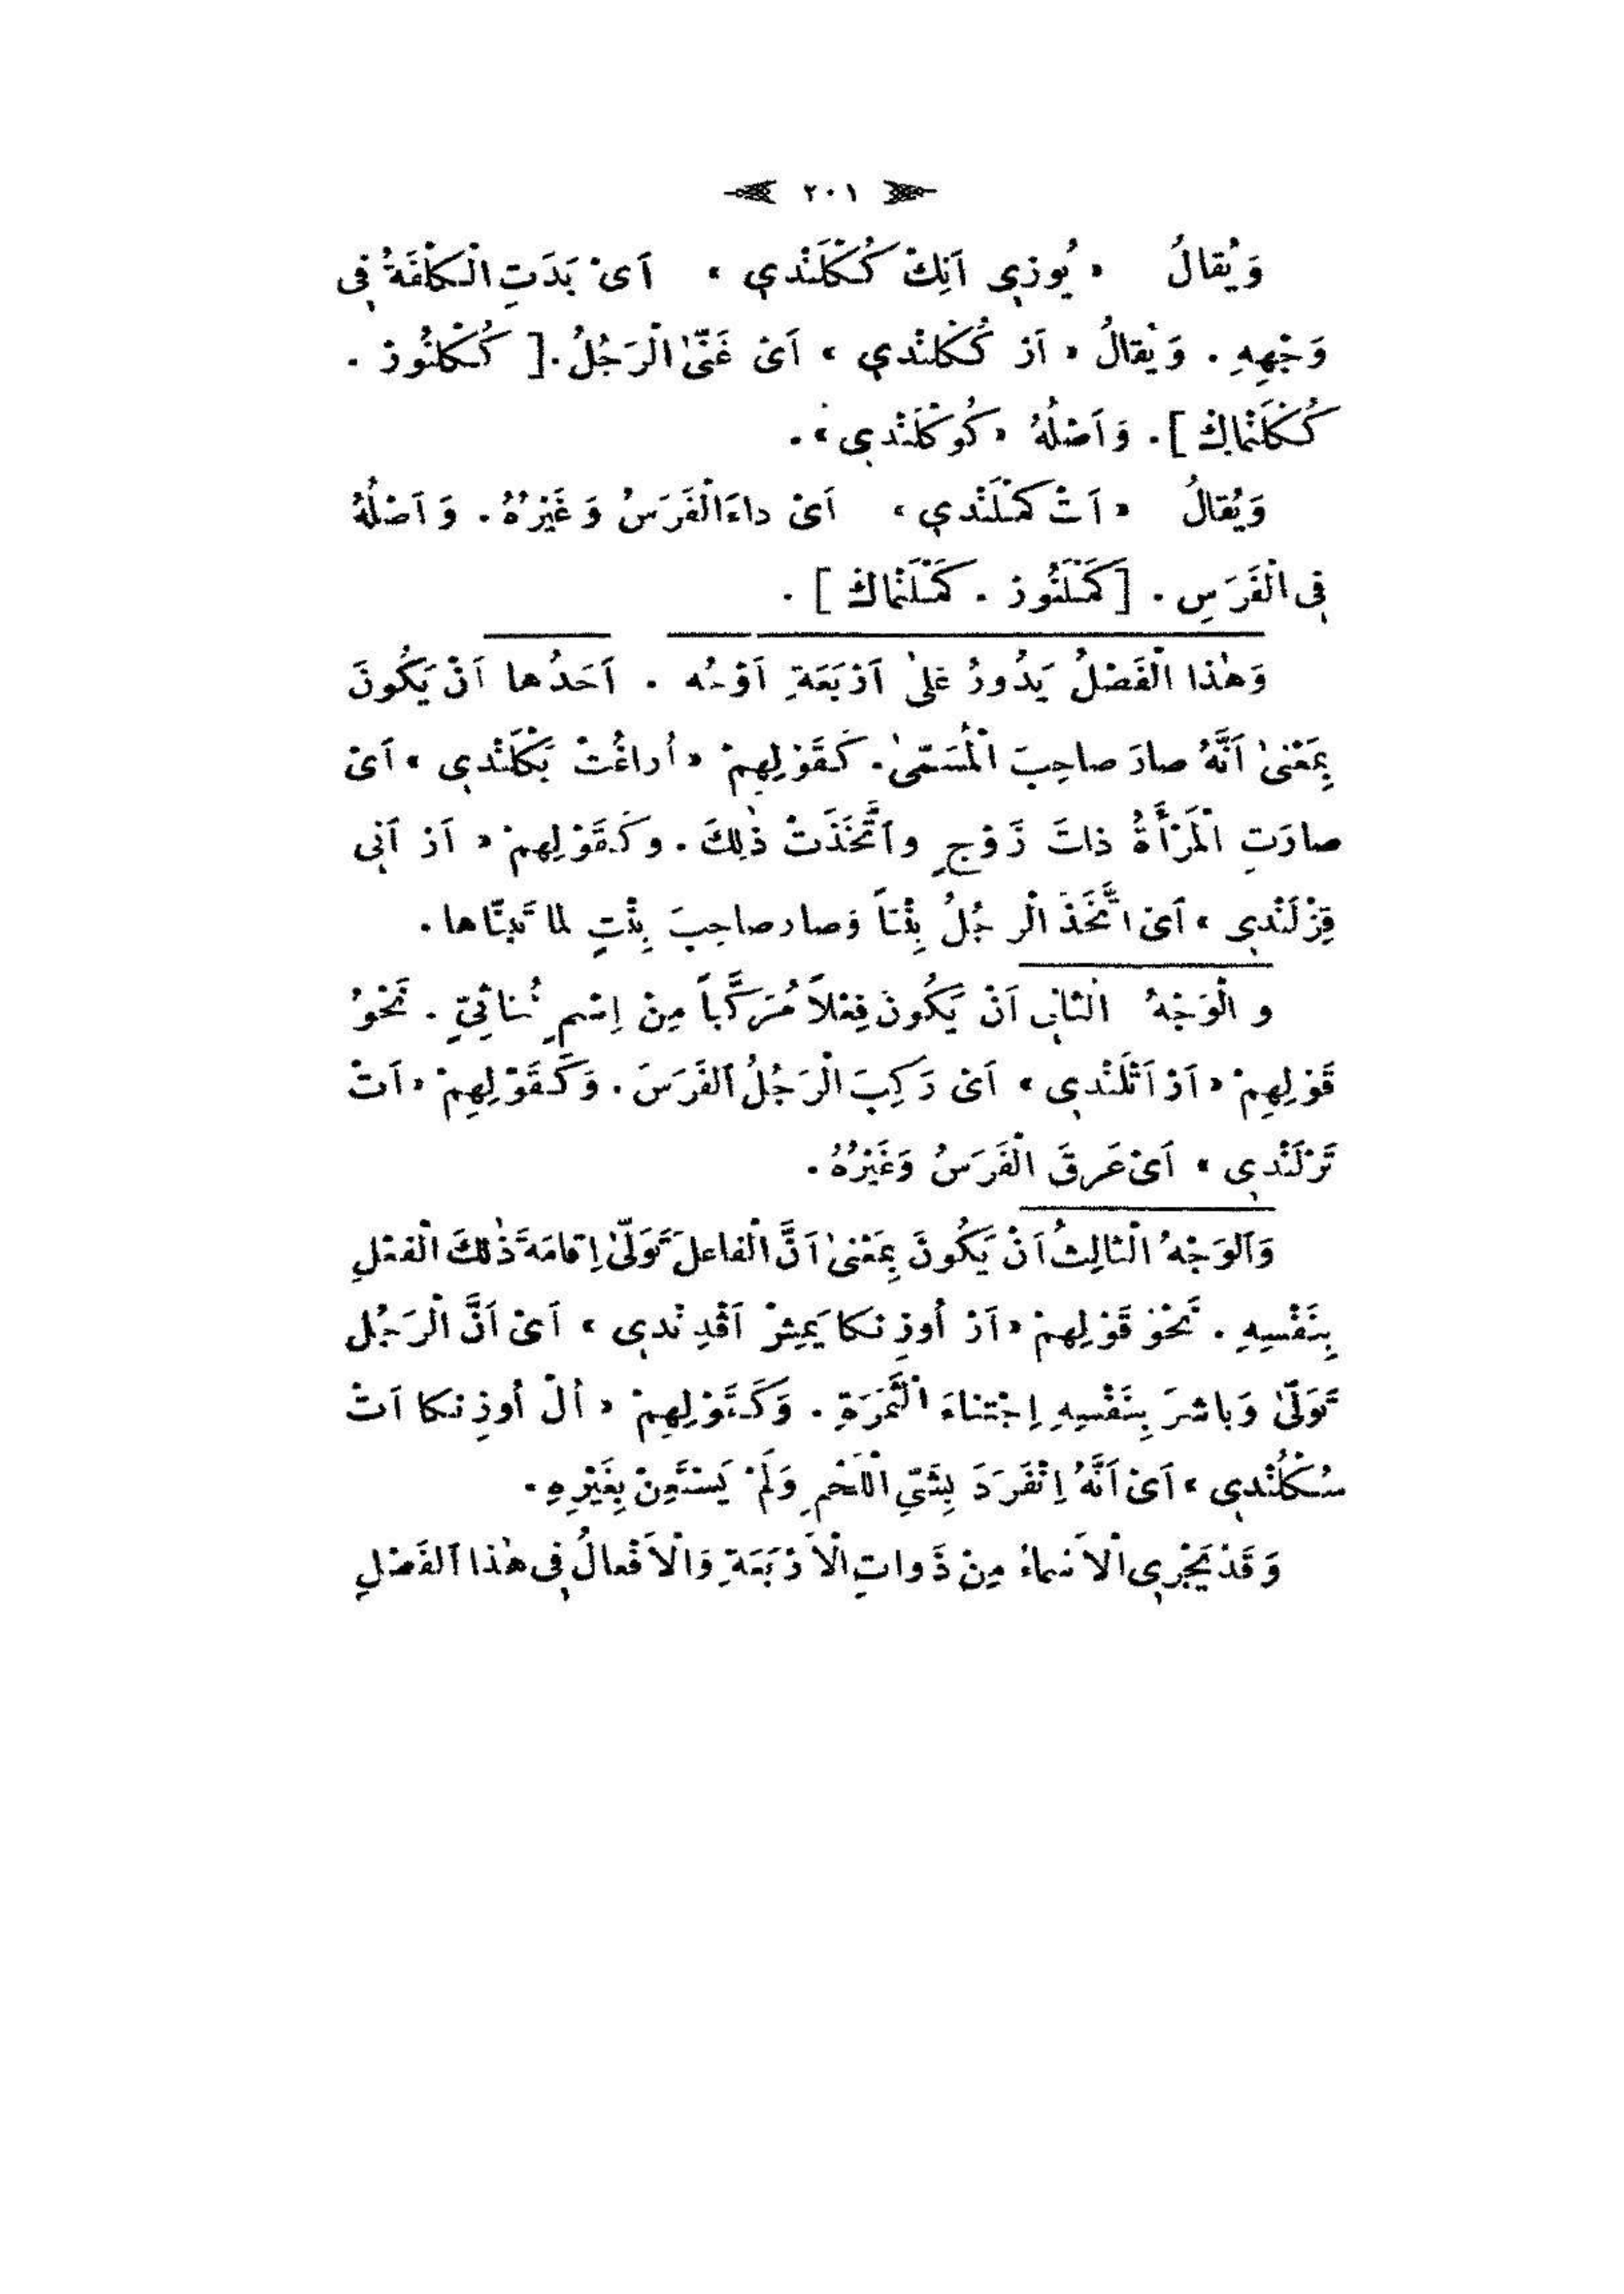 ٢٠١
وَيُقالُ « يُوزى اَنِكْ كُكْلَنْدى » اَىْ بَدَتِ الْكَلْفَةُ فِى
وَجْهِهِ . وَيُقالُ « اَرْ كُكْلَنْدى » اَىْ غَنّٰى الْرَجُلُ . [ كُكْلَنُورْ .
كُكْلَنْماكْ ] . وَاَصْلُهُ « كُوكْلَنْدى » .
وَيُقالُ « اَتْ كَمْلَنْدى » اَىْ داءَالْفَرَسُ وَغَيْرُهُ . وَاَصْلُهُ
فِى الْفَرَسِ . [ كَمْلَنُورْ . كَمْلَنْماكْ ] .
وَهٰذا الْفَصْلُ يَدُورُ عَلىٰ اَرْبَعَةِ اَوْجُه . اَحَدُها اَنْ يَكُونَ
بِمَعْنىٰ اَنَّهُ صارَ صاحِبَ الْمُسَمّىٰ . كَقَوْلِهِمْ « اُراغُتْ بَكْلَنْدى » اَىْ
صارَتِ الْمَرْأَةُ ذاتَ زَوْجٍ واَتَّخَذَتْ ذٰلِكَ . وكَقَوْلِهِمْ « اَرْ اَنِى
قِزْلَنْدى » اَىْ اتَّخَذَ الْرجُلُ بِنْتاً وَصارصاحِبَ بِنْتٍ لما تَبنّاها .
و الْوَجْهُ الْثانى اَنْ يَكُونَ فِعْلاً مُرَكَّباً مِنْ اِسْمٍ ثُنائِىٍّ . نَحْوُ
قَوْلِهِمْ « اَرْ اَتْلَنْدى » اَىْ رَكِبَ الْرَجُلُ اَلفَرَسَ . وَكَقَوْلِهِمْ « اَتْ
تَرْلَنْدى » اَىْ عَرِقَ الْفَرَسُ وَغَيْرُهُ .
وَاَلوَجْهُ الْثالِثُ اَنْ يَكُونَ بِمَعْنىٰ اَنَّ الْفاعلَ تَوَلّىٰ اِقامَةَ ذٰلِكَ الْفعْلِ
بِنَفْسِهِ . نَحْوَ قَوْلِهِمْ « اَرْ اُوزِنكا يَمِشْ اَقْدِنْدى » اَىْ اَنَّ الْرَجُل
تَوَلّىٰ وَباشرَ بِنَفْسِهِ اِجْتناءَ الْثَمَرَةِ . وَكَقَوْلِهِمْ « اُلْ اُوزِنكا اَتْ
سُكْلُنْدى » اَىْ اَنَّهُ اِنْفَرَدَ بِشَىِّ الْلَحْمِ وَلَمْ يَسْتَعِنْ بِغَيْرِهِ .
وَقَدْ يَجْرِى الْاَسْماءُ مِنْ ذَواتِ الْاَرْبَعَةِ وَالْاَفْعالُ فِى هٰذا اَلفَصْلِ